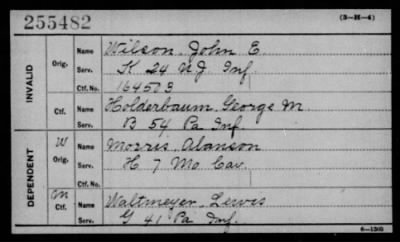 255482 (3-H-4)
INVALID
Orig. Name Wilson, John E.
Serv. K 24 N.J. Inf.
Ctf. No. 164503
Ctf. Name Holderbaum, George M.
Serv. B 54 Pa Inf.
DEPENDENT
W Orig. Name Morris, Alanson
Serv. H 7 Mo. Cav.
Ctf. No.
M Ctf. Name Waltmeyer, Lewis
Serv. G 41 Pa Inf.